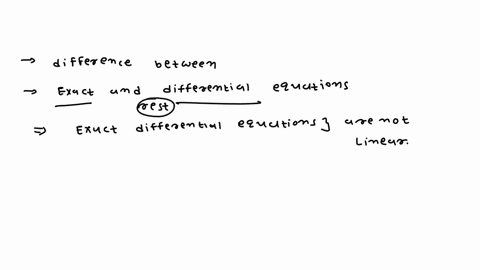 → difference between
→ Exact and differential equations
rest
⇒ Exact differential equations } are not
Linear.